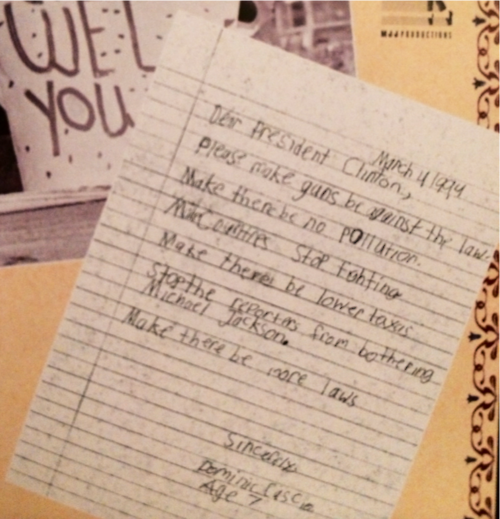 WEL
YOU
MJJ PRODUCTIONS
March 4 1994
Dear President Clinton,
Please make guns be against the law.
Make there be no pollution.
Make Countries Stop fighting
Make there be lower taxes
Stop the reporters from bothering
Michael Jackson.
Make there be more laws
Sincerely,
Dominic Casc
Age 7